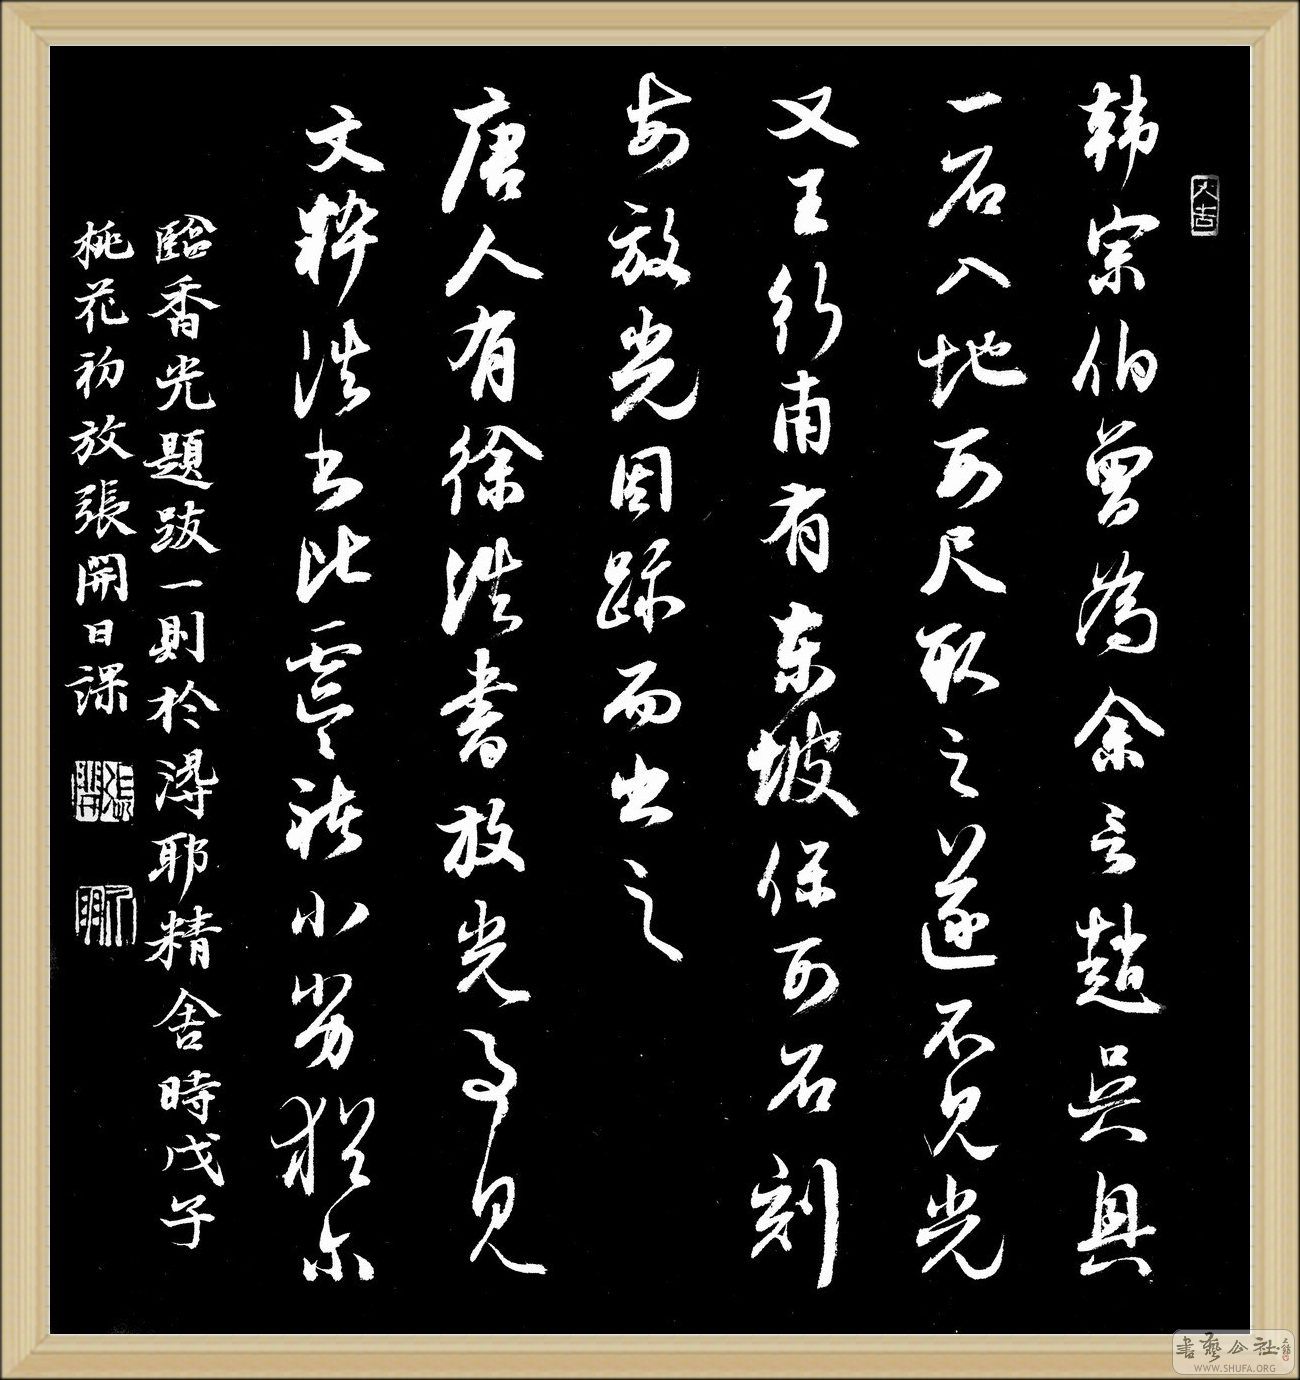 韩宗伯曾為余言趙吳興
一石入地可尺取之遂不見光
又王行甫有東坡保可石刻
每放光因跡而出之
唐人有徐浩書放光事見
文粹浩書比虞褚小劣猶尔
臨香光題跋一則於淂耶精舍時戊子
桃花初放張開日課
大吉
張開
書藝公社
WWW.SHUFA.ORG